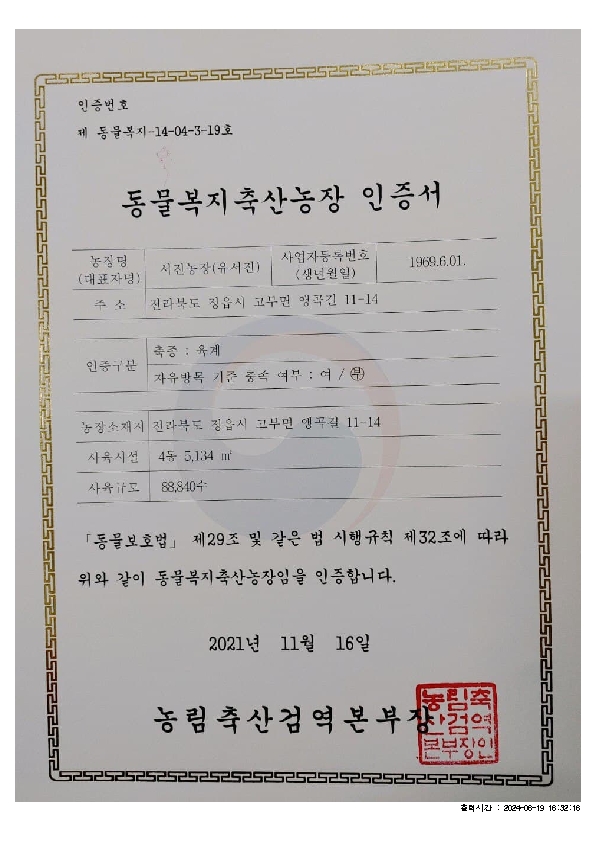 인증번호
제 동물복지-14-04-3-19호
동물복지축산농장 인증서
농장명
(대표자명)
서진농장(유서진)
사업자등록번호
(생년월일)
1969.6.01.
주 소
전라북도 정읍시 고부면 앵곡길 11-14
인증구분
축종 : 육계
자유방목 기준 충족 여부 : 여 / 부
농장소재지
전라북도 정읍시 고부면 앵곡길 11-14
사육시설
4동 5,134 ㎡
사육규모
88,840수
「동물보호법」 제29조 및 같은 법 시행규칙 제32조에 따라
위와 같이 동물복지축산농장임을 인증합니다.
2021년 11월 16일
농림축산검역본부장
농림축
산검역
본부장인
출력시간 : 2024-06-19 16:32:16